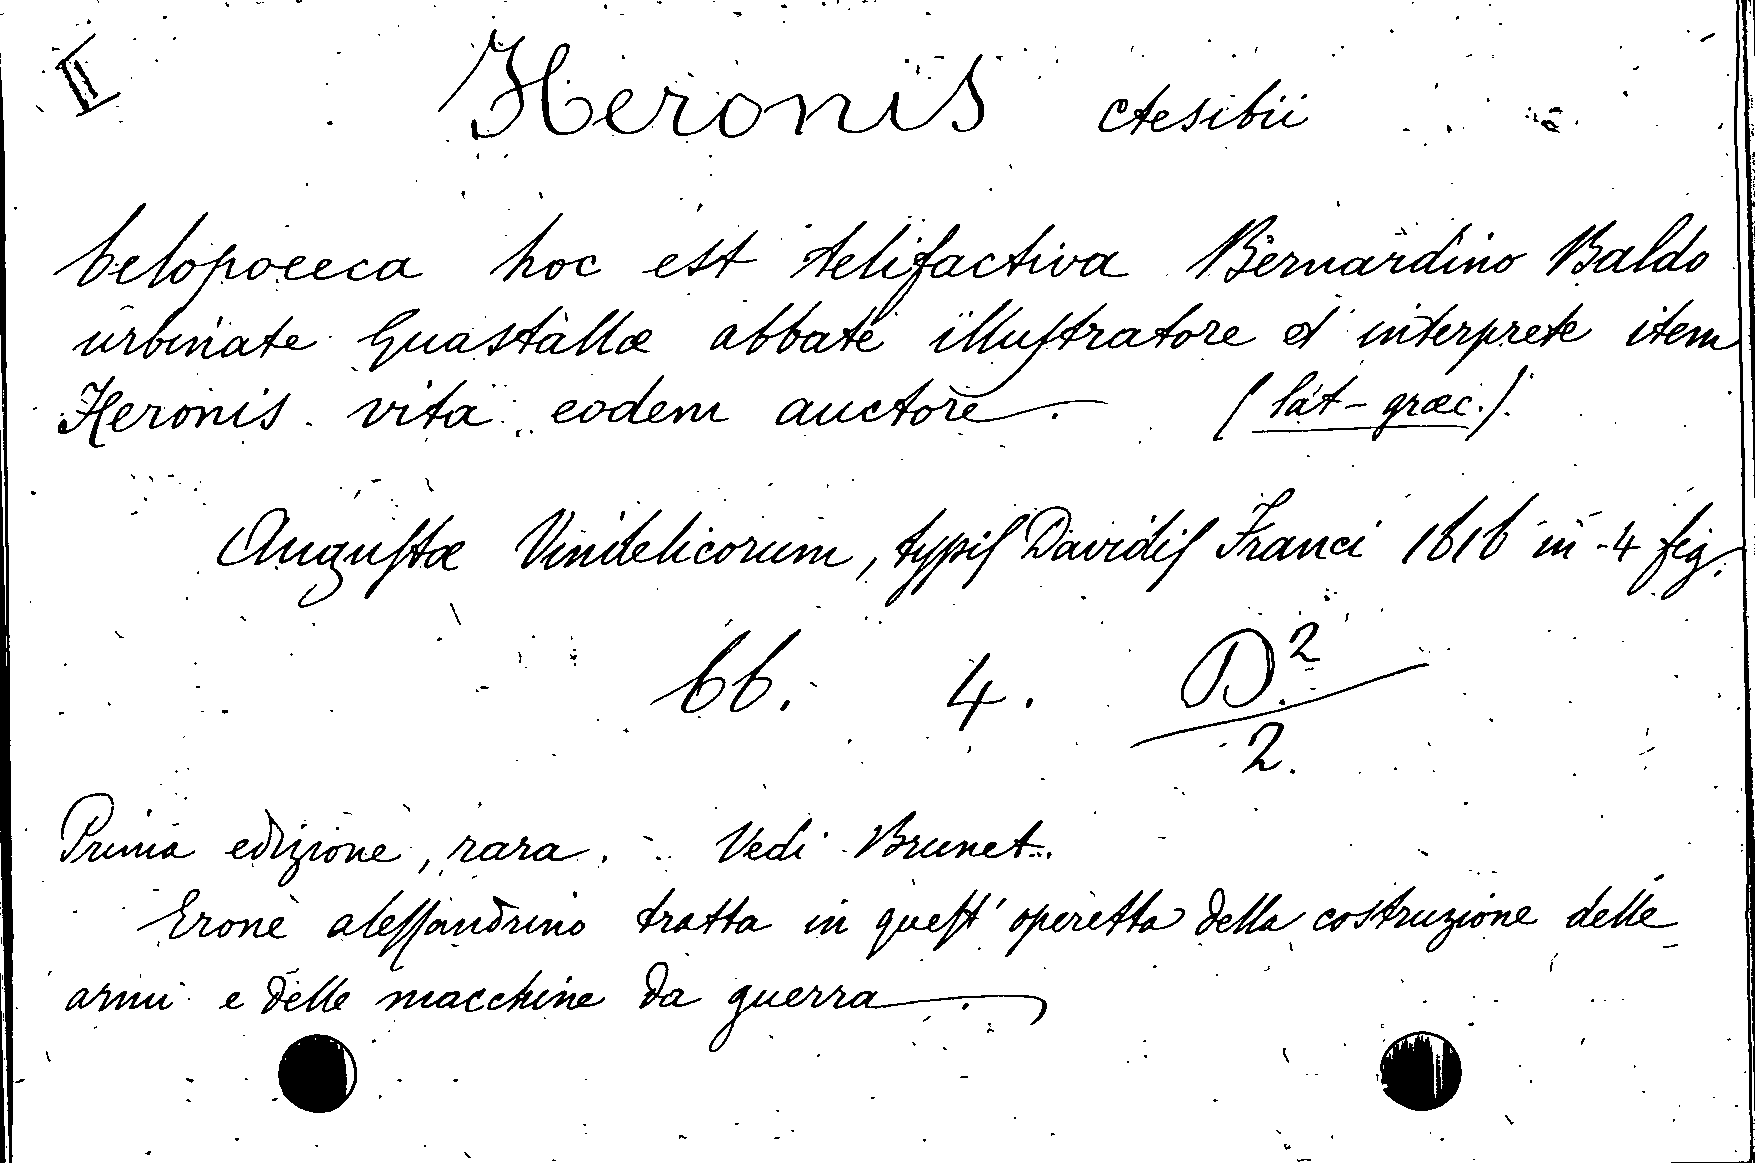 II
Heronis ctesibii
belopoeeca hoc est telifactiva Bernardino Baldo
urbinate Guastallæ abbate illuſtratore et interprete item
Heronis vita eodem auctore. (lat-græc.).
Auguſtæ Vindelicorum, typiſ Davidiſ Franci 1616 in-4 fig.
66. 4. D.²
2.
Prima edizione, rara. Vedi Brunet.
Erone aleſſandrino tratta in queſt' operetta della costruzione delle
armi e delle macchine da guerra.